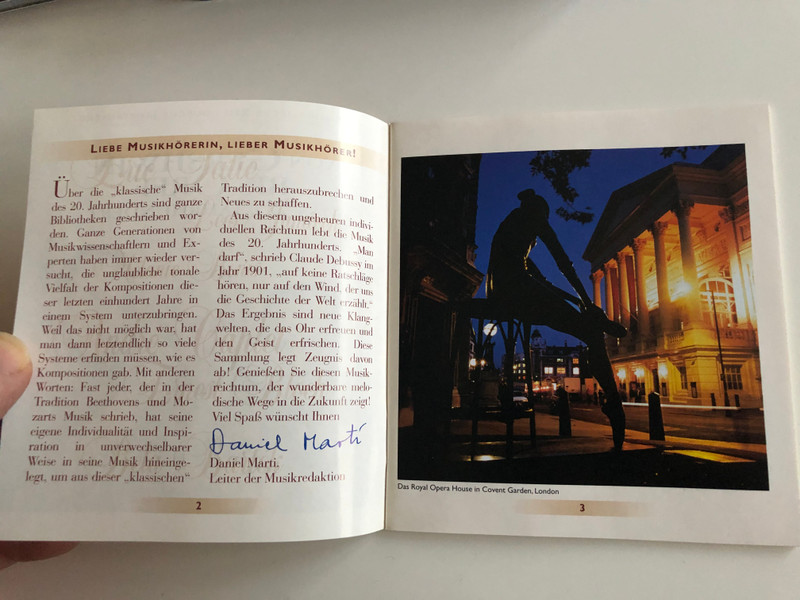 LIEBE MUSIKHÖRERIN, LIEBER MUSIKHÖRER!
Über die „klassische“ Musik
des 20. Jahrhunderts sind ganze
Bibliotheken geschrieben wor-
den. Ganze Generationen von
Musikwissenschaftlern und Ex-
perten haben immer wieder ver-
sucht, die unglaubliche tonale
Vielfalt der Kompositionen die-
ser letzten einhundert Jahre in
einem System unterzubringen.
Weil das nicht möglich war, hat
man dann letztendlich so viele
Systeme erfinden müssen, wie es
Kompositionen gab. Mit anderen
Worten: Fast jeder, der in der
Tradition Beethovens und Mo-
zarts Musik schrieb, hat seine
eigene Individualität und Inspi-
ration in unverwechselbarer
Weise in seine Musik hineinge-
legt, um aus dieser „klassischen“
Tradition herauszubrechen und
Neues zu schaffen.
Aus diesem ungeheuren indivi-
duellen Reichtum lebt die Musik
des 20. Jahrhunderts. „Man
darf“, schrieb Claude Debussy im
Jahr 1901, „auf keine Ratschläge
hören, nur auf den Wind, der uns
die Geschichte der Welt erzählt.“
Das Ergebnis sind neue Klang-
welten, die das Ohr erfreuen und
den Geist erfrischen. Diese
Sammlung legt Zeugnis davon
ab! Genießen Sie diesen Musik-
reichtum, der wunderbare melo-
dische Wege in die Zukunft zeigt!
Viel Spaß wünscht Ihnen
Daniel Martí
Daniel Marti.
Leiter der Musikredaktion
2
Das Royal Opera House in Covent Garden, London
3